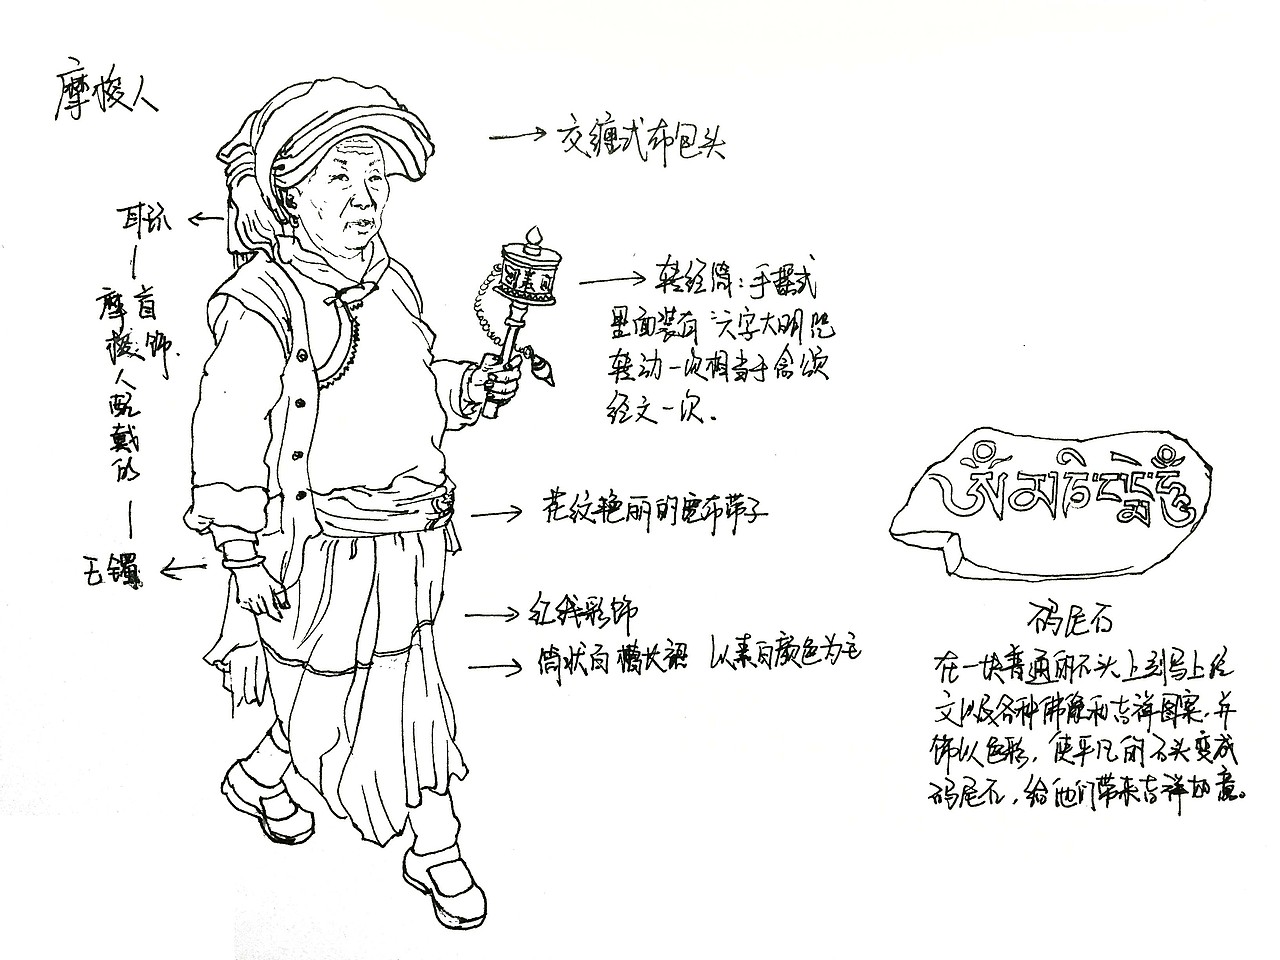 摩梭人
交缠式布包头
耳环
摩梭人配戴的
首饰.
玉镯
转经筒：手摇式
里面装有"六字大明咒
转动一次相当于念颂
经文一次.
花纹艳丽的宽布带子
红线彩饰
筒状百褶长裙 以素白颜色为主
ༀ་མ་ཎི་པདྨེ་ཧཱུྃ
玛尼石
在一块普通的石头上刻写上经
文以及各种佛像和吉祥图案，并
饰以色彩，使平凡的石头变成
玛尼石，给他们带来吉祥如意。